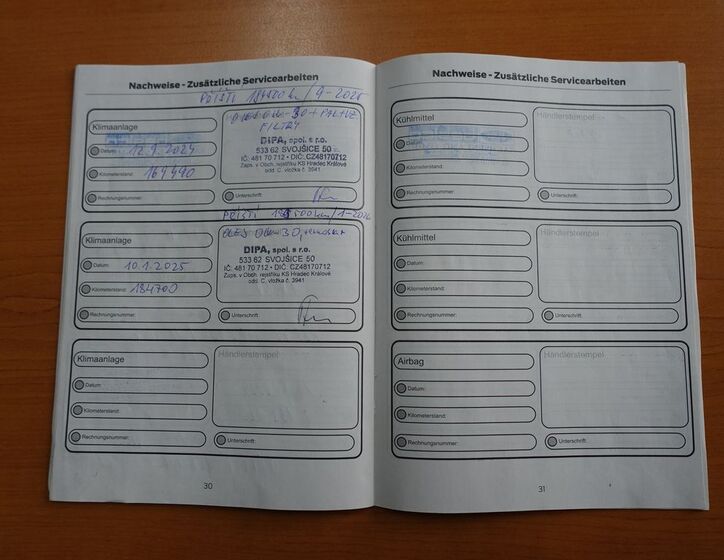 Nachweise - Zusätzliche Servicearbeiten
PŘÍŠTÍ 184500 km / 9-2025
Klimaanlage
Datum: 12.9.2024
Kilometerstand: 164490
Rechnungsnummer:
FILTRY
DIPA, spol. s r.o.
533 62 SVOJŠICE 50
IČ: 481 70 712 • DIČ: CZ48170712
Zaps. v Obch. rejstříku KS Hradec Králové
odd. C. vložka č. 3941
Unterschrift:
PŘÍŠTÍ 500 km / 1-2026
Klimaanlage
Datum: 10.1.2025
Kilometerstand: 184700
Rechnungsnummer:
OLEJ
DIPA, spol. s r.o.
533 62 SVOJŠICE 50
IČ: 481 70 712 • DIČ: CZ48170712
Zaps. v Obch. rejstříku KS Hradec Králové
odd. C. vložka č. 3941
Unterschrift:
Klimaanlage
Händlerstempel
Datum:
Kilometerstand:
Rechnungsnummer:
Unterschrift:
30
Nachweise - Zusätzliche Servicearbeiten
Kühlmittel
Händlerstempel
Datum:
Kilometerstand:
Rechnungsnummer:
Unterschrift:
Kühlmittel
Händlerstempel
Datum:
Kilometerstand:
Rechnungsnummer:
Unterschrift:
Airbag
Händlerstempel
Datum:
Kilometerstand:
Rechnungsnummer:
Unterschrift:
31